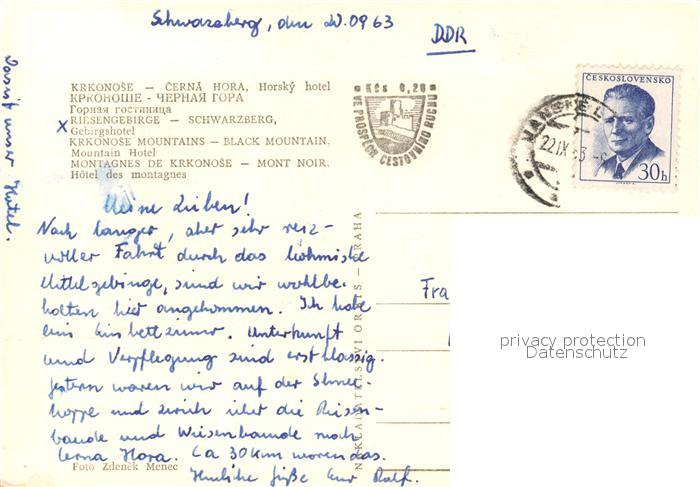 Schwarzberg, den 20.09 63
DDR
Das ist unser Hotel.
KRKONOŠE — ČERNÁ HORA, Horský hotel
КРКОНОШЕ - ЧЕРНАЯ ГОРА
Горная гостиница
x RIESENGEBIRGE — SCHWARZBERG,
Gebirgshotel
KRKONOŠE MOUNTAINS — BLACK MOUNTAIN,
Mountain Hotel
MONTAGNES DE KRKONOŠE — MONT NOIR,
Hôtel des montagnes
Kčs 0,20
VE PROSPĚCH CESTOVNÍHO RUCHU
22.IX.
ČESKOSLOVENSKO
30h
Meine Lieben!
Nach langer, aber sehr reiz-
voller Fahrt durch das böhmische
Mittelgebirge, sind wir wohlbe-
halten hier angekommen. Ich habe
ein Einbettzimmer. Unterkunft
und Verpflegung sind erstklassig.
Gestern waren wir auf der Schnee-
koppe und zurück über die Riesen-
baude und Wiesenbaude nach
Cerna Hora. Ca 30 km waren das.
Herzliche Grüße Euer Ralf.
Foto Zdeněk Menec
NAKLADATELSTVÍ ORBIS — PRAHA
Fra
privacy protection
Datenschutz